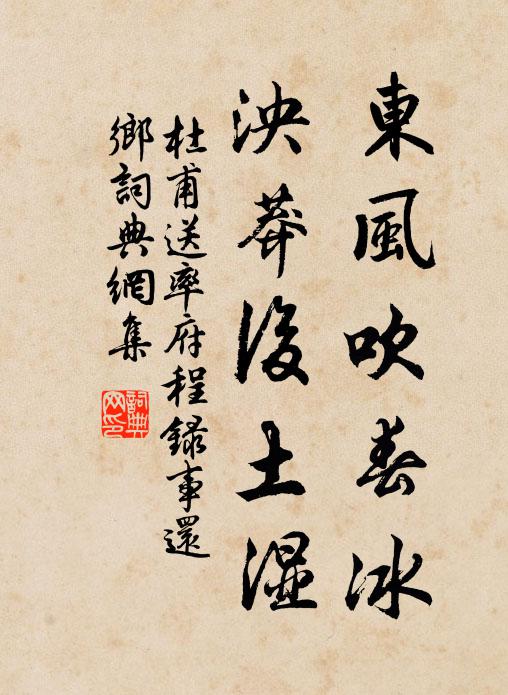 東風吹春冰
泱莽後土濕
杜甫送率府程錄事還
鄉詞典網集
詞典网印